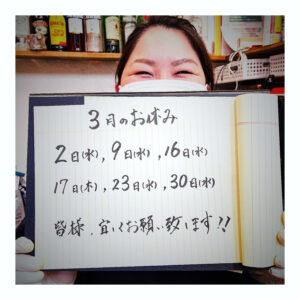 3月のお休み
2日(水), 9日(水), 16日(水)
17日(木), 23日(水), 30日(水)
皆様、宜しくお願い致します!!